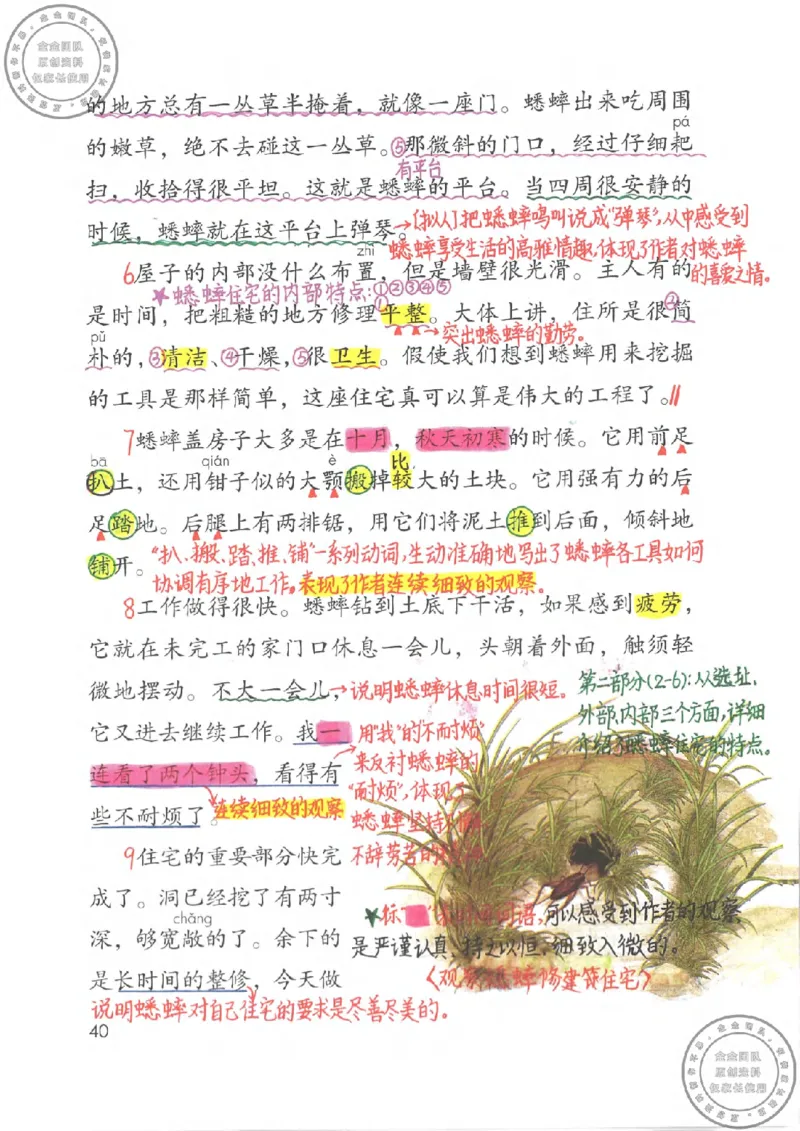 企企团队
原创资料
仅家长使用
的地方总有一丛草半掩着，就像一座门。蟋蟀出来吃周围
pá
的嫩草，绝不去碰这一丛草。⑤那微斜的门口，经过仔细耙
有平台
扫，收拾得很平坦。这就是蟋蟀的平台。当四周很安静的
时候，蟋蟀就在这平台上弹琴。
→[拟人]把蟋蟀鸣叫说成"弹琴"，从中感受到
蟋蟀享受生活的高雅情趣，体现了作者对蟋蟀
的喜爱之情。
zhì
6屋子的内部没什么布置，但是墙壁很光滑。主人有的
★蟋蟀住宅的内部特点：①②③④⑤
①
②
是时间，把粗糙的地方修理平整。大体上讲，住所是很简
→突出蟋蟀的勤劳。
pǔ
朴的，③清洁、④干燥，⑤很卫生。假使我们想到蟋蟀用来挖掘
的工具是那样简单，这座住宅真可以算是伟大的工程了。//
7蟋蟀盖房子大多是在十月，秋天初寒的时候。它用前足
bā qián è 比
扒土，还用钳子似的大颚搬掉较大的土块。它用强有力的后
足踏地。后腿上有两排锯，用它们将泥土推到后面，倾斜地
铺开。
"扒、搬、踏、推、铺"一系列动词，生动准确地写出了蟋蟀各工具如何
协调有序地工作。表现了作者连续细致的观察。
8工作做得很快。蟋蟀钻到土底下干活，如果感到疲劳，
它就在未完工的家门口休息一会儿，头朝着外面，触须轻
微地摆动。不大一会儿，
→说明蟋蟀休息时间很短。
第二部分(2-6)：从选址、
外部、内部三个方面，详细
介绍了蟋蟀住宅的特点。
它又进去继续工作。我一
连看了两个钟头，看得有
些不耐烦了。
连续细致的观察
用"我"的"不耐烦"
来反衬蟋蟀的
"耐烦"，体现了
蟋蟀坚持
不辞劳苦的
9住宅的重要部分快完
成了。洞已经挖了有两寸
chǎng
深，够宽敞的了。余下的
是长时间的整修，今天做
★标
可以感受到作者的观察
是严谨认真、持之以恒、细致入微的。
〈观察蟋蟀修建住宅〉
说明蟋蟀对自己住宅的要求是尽善尽美的。
40
企企团队
原创资料
仅家长使用